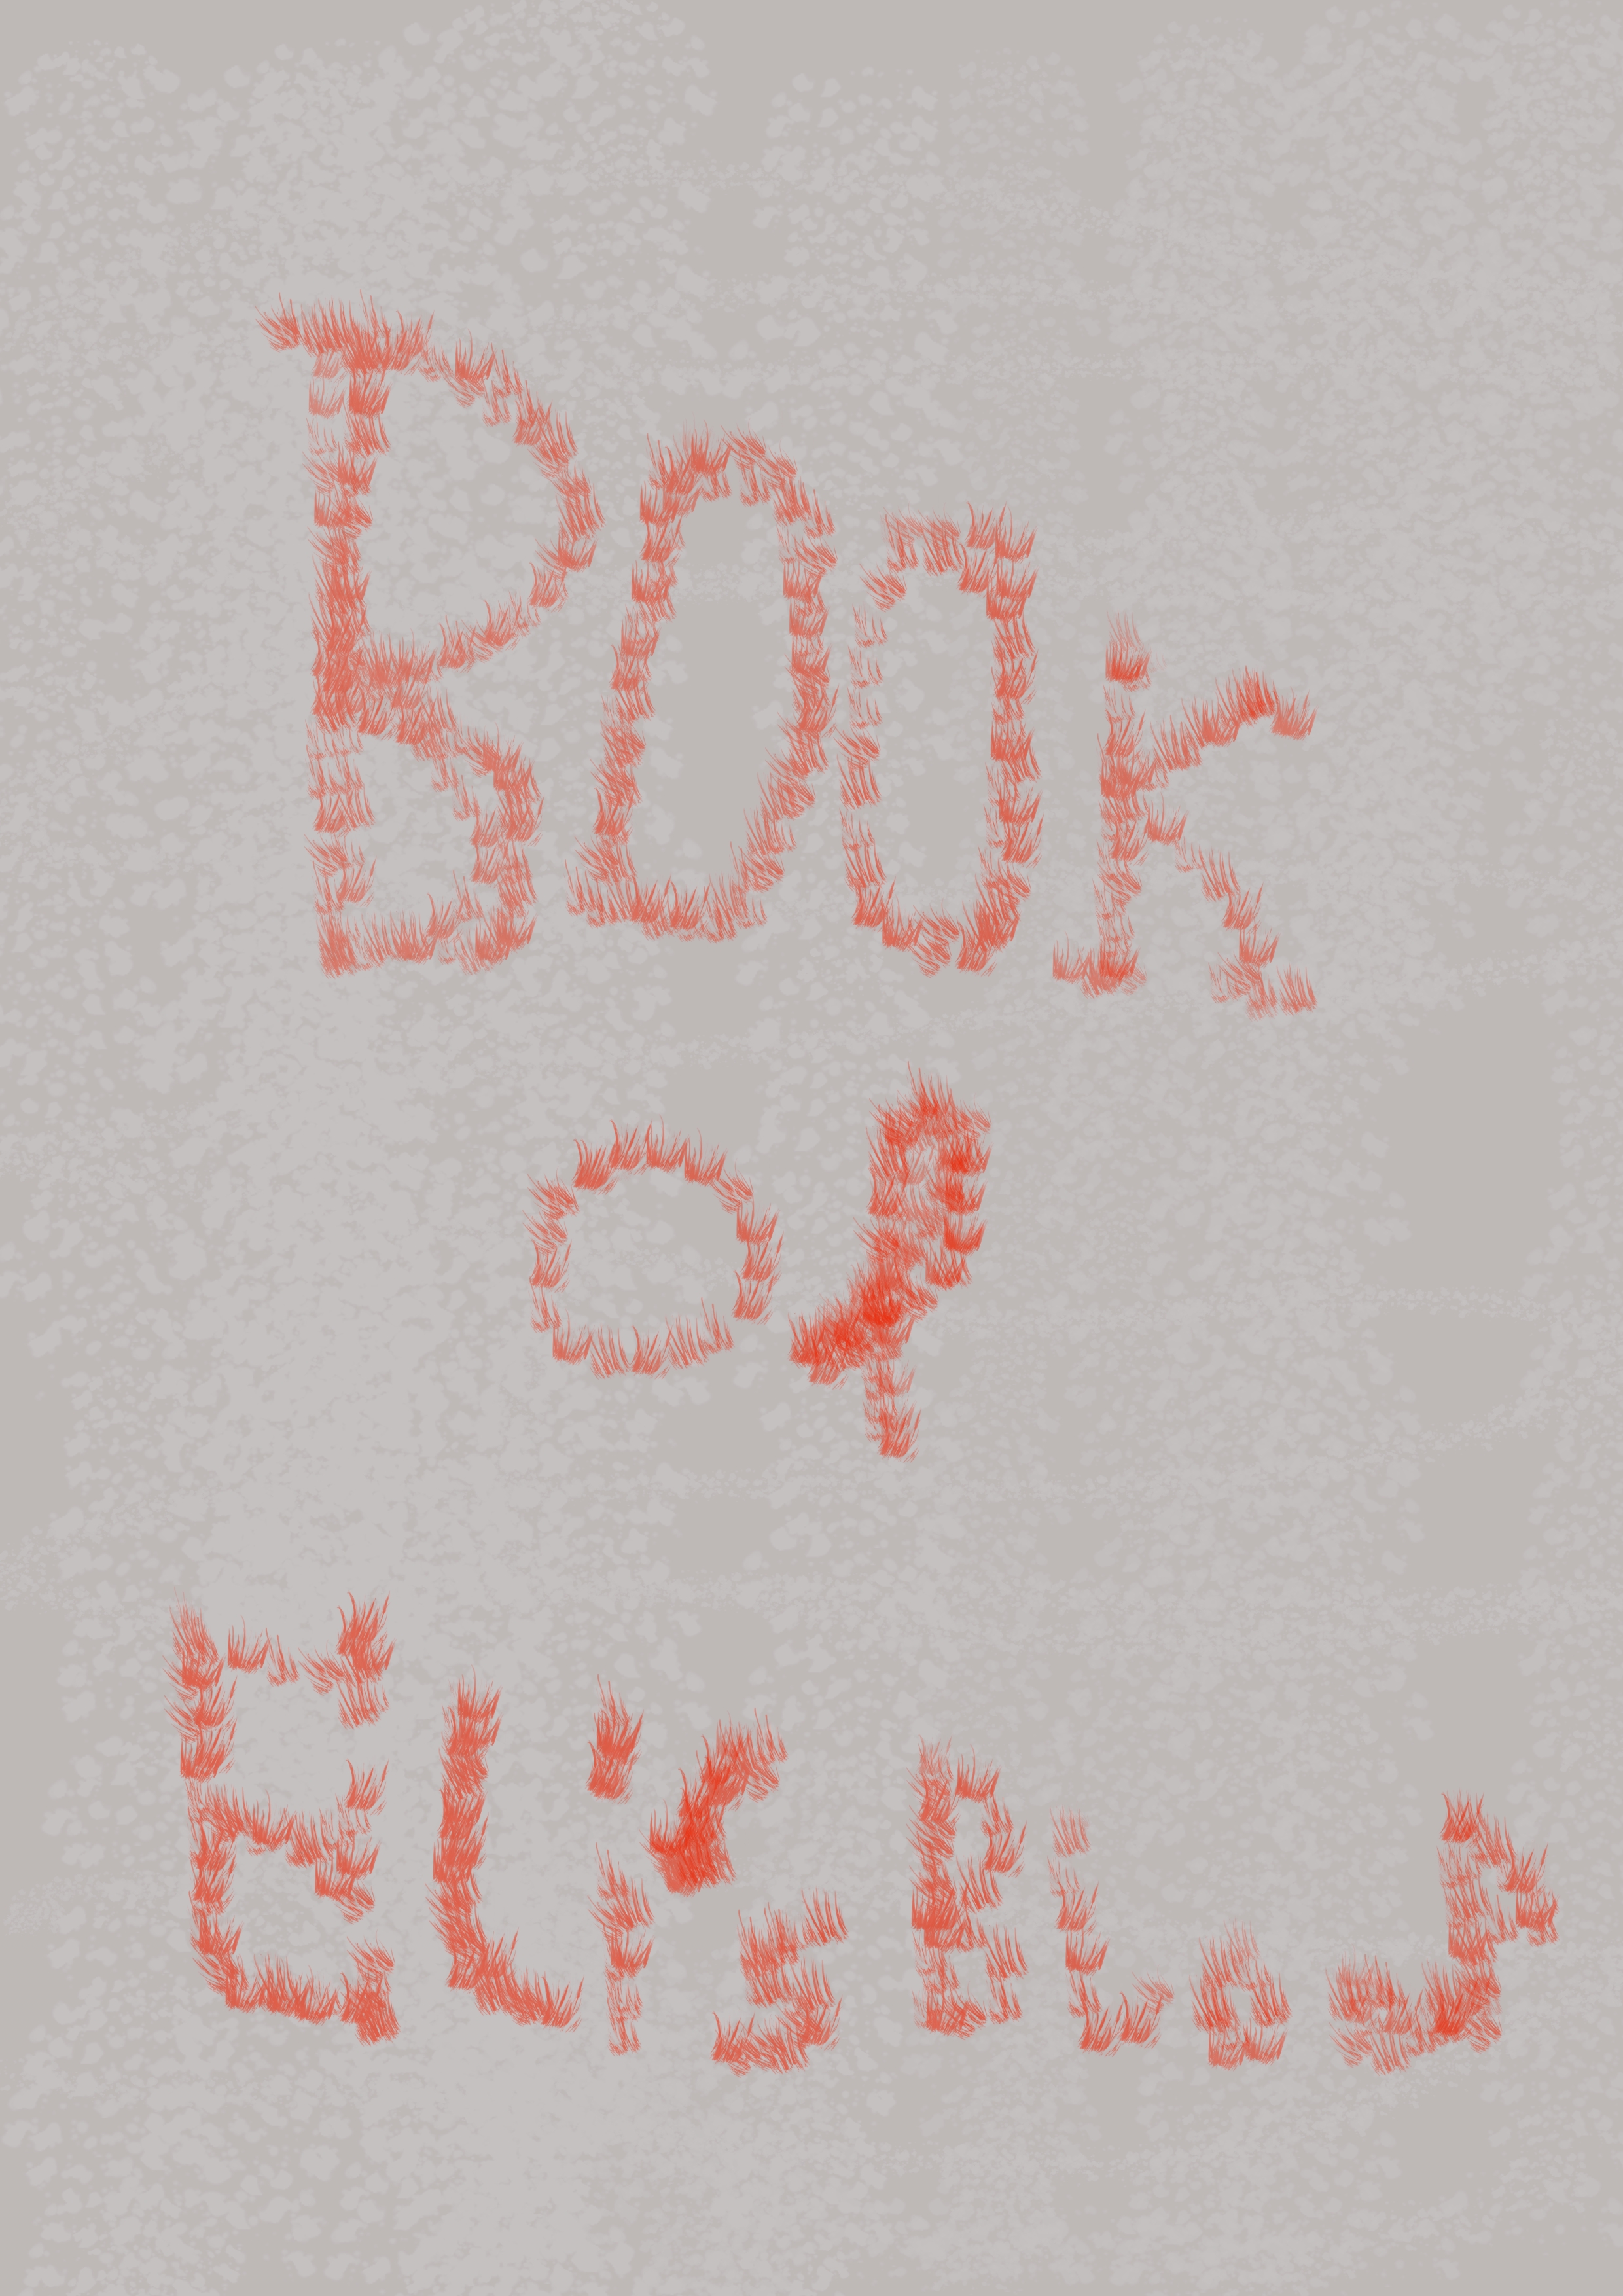 Book
of
Eli's Blog